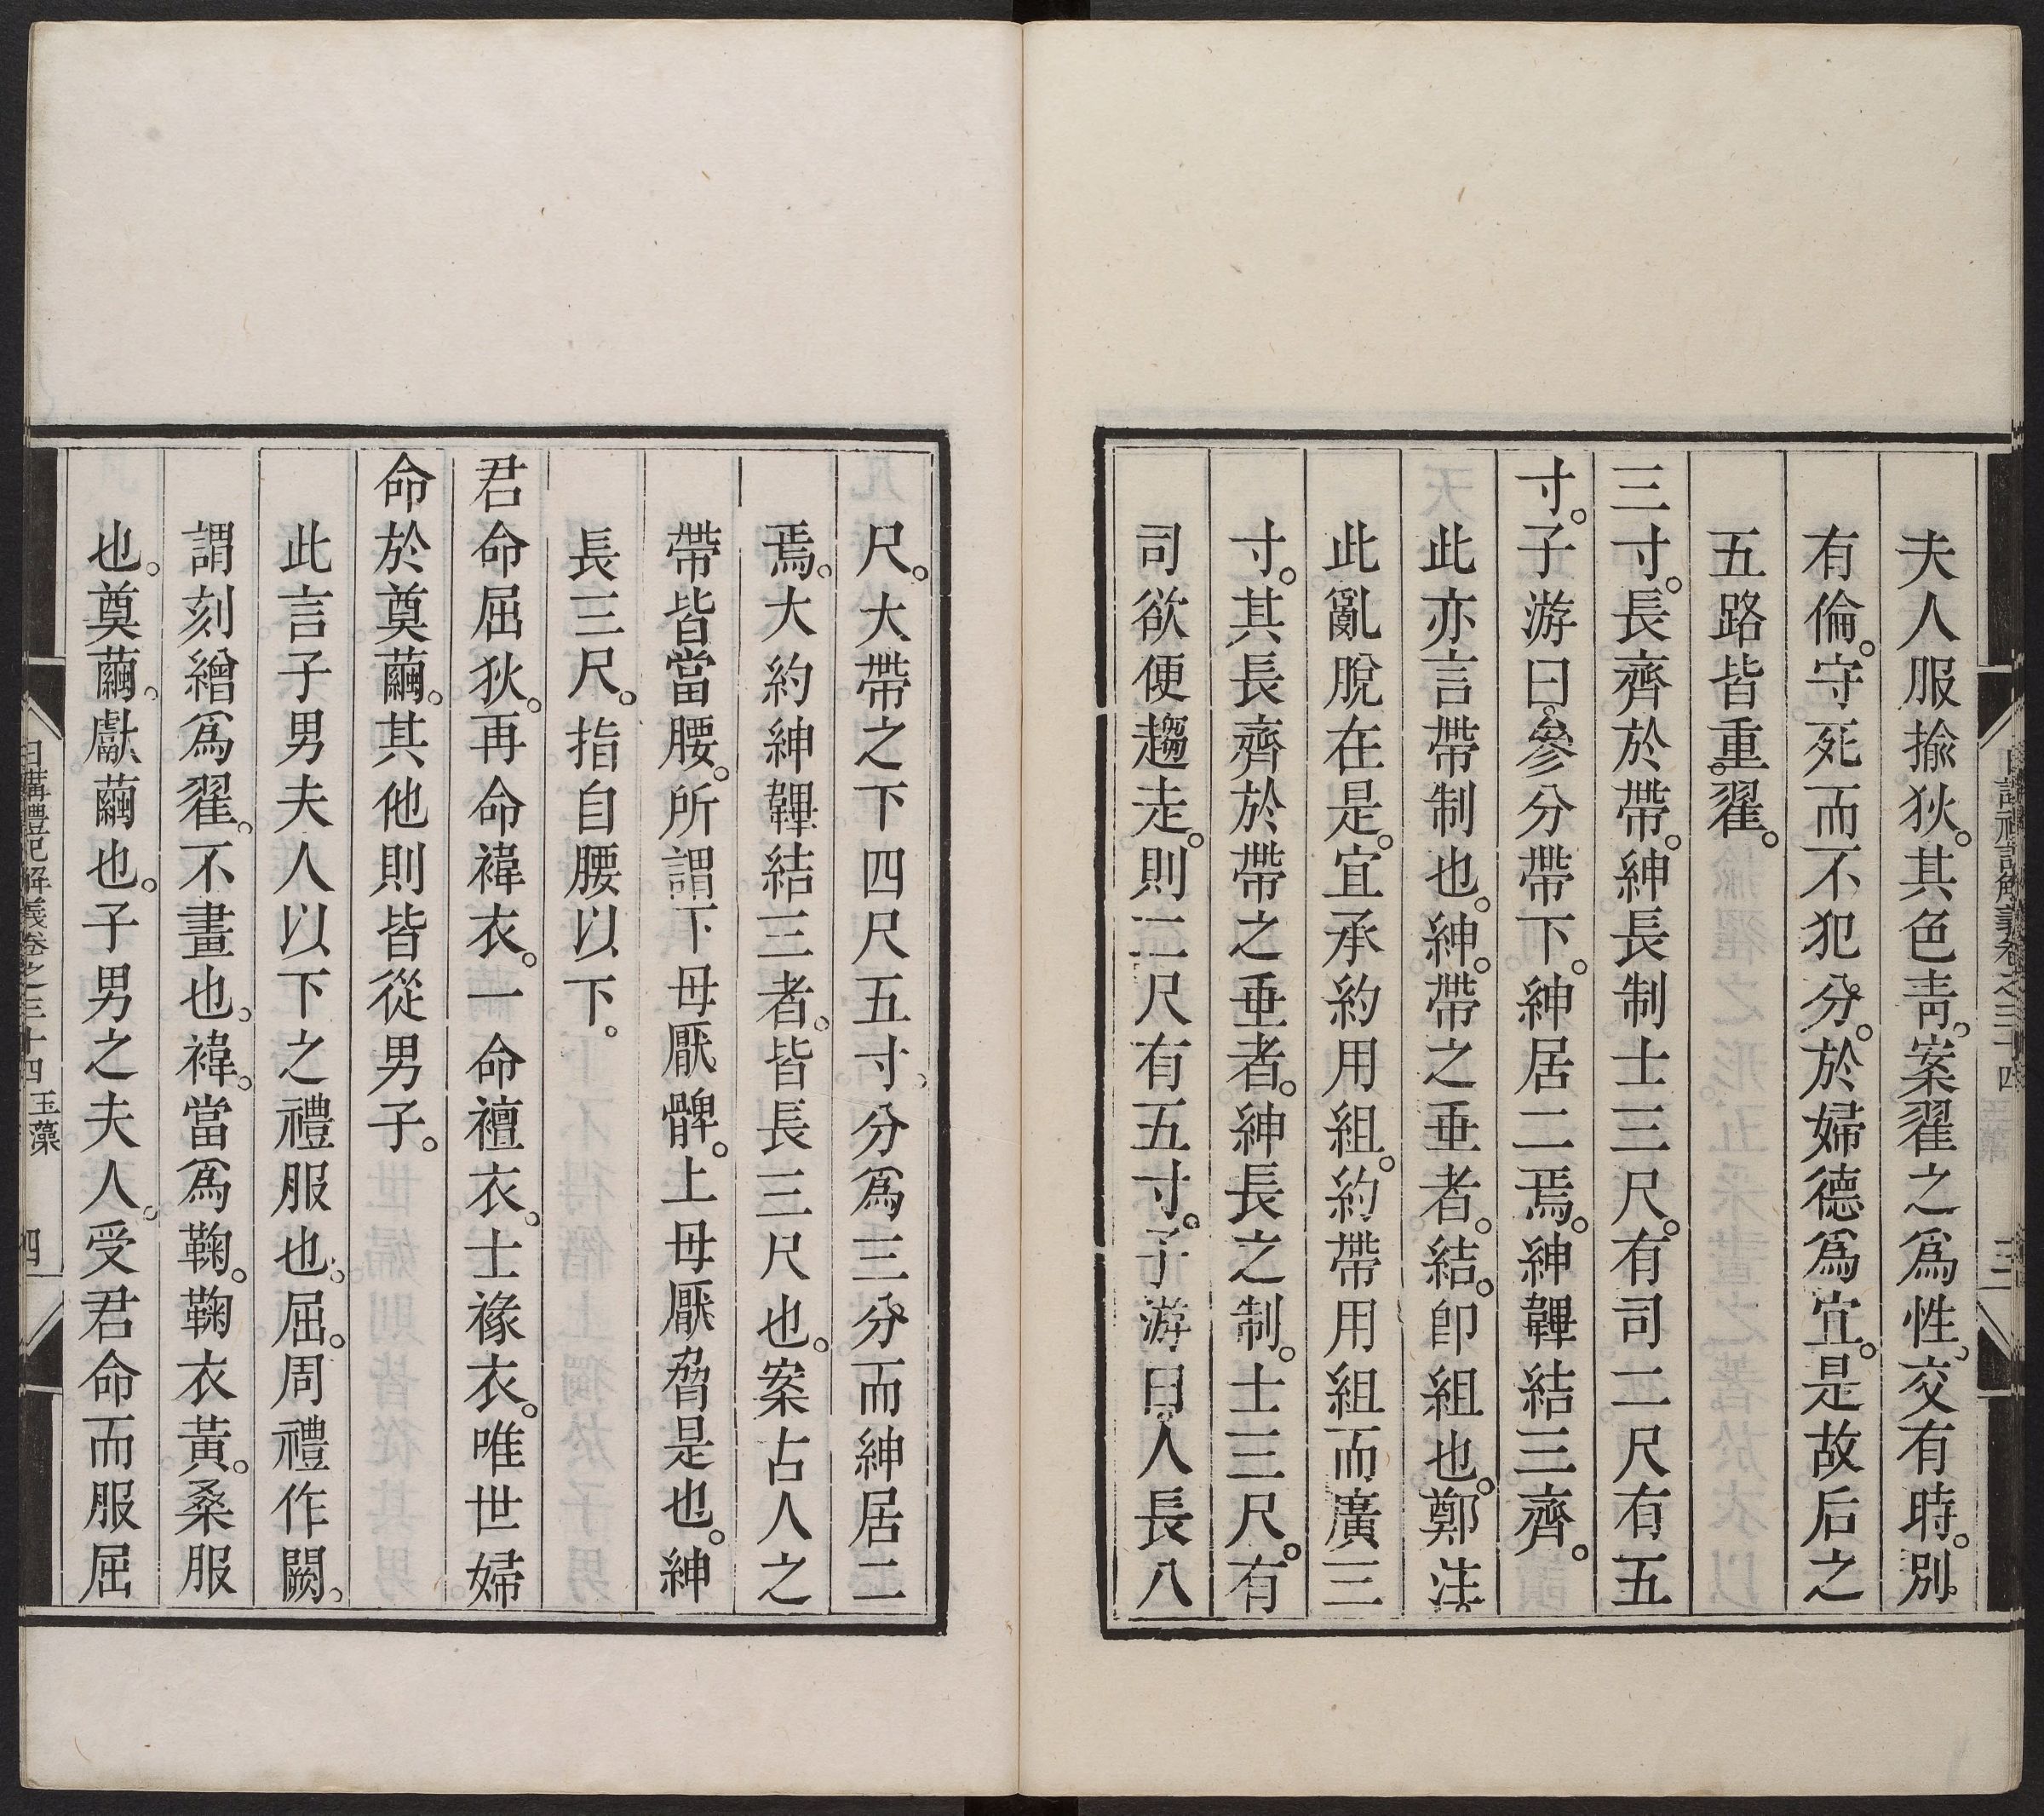 夫人服揄狄。其色靑。案翟之爲性。交有時。別
有倫。守死而不犯分。於婦德爲宜。是故后之
五路皆重翟。
三寸。長齊於帶。紳長制士三尺。有司二尺有五
寸。子游曰。參分帶下。紳居二焉。紳韠結三齊。
此亦言帶制也。紳。帶之垂者。結。卽組也。鄭注
此亂脫在是。宜承約用組。約帶用組而廣三
寸。其長齊於帶之垂者。紳長之制。士三尺。有
司欲便趨走。則二尺有五寸。子游曰。人長八
尺。大帶之下四尺五寸。分爲三分而紳居二
焉。大約紳韠結三者。皆長三尺也。案古人之
帶皆當腰。所謂下毋厭髀。上毋厭脅是也。紳
長三尺。指自腰以下。
君命屈狄。再命褘衣。一命襢衣。士褖衣。唯世婦
命於奠繭。其他則皆從男子。
此言子男夫人以下之禮服也。屈。周禮作闕。
謂刻繒爲翟。不畫也。褘。當爲鞠。鞠衣黃。桑服
也。奠繭。獻繭也。子男之夫人。受君命而服屈
日講禮記解義卷之三十四 玉藻 四